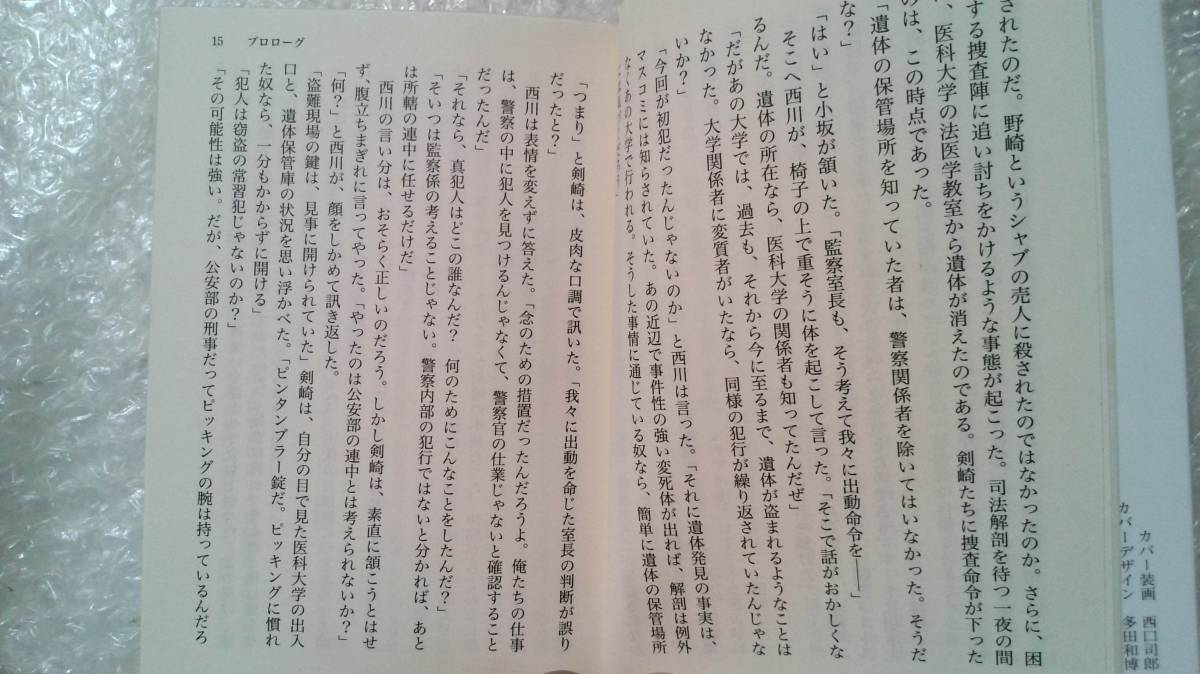 されたのだ。野崎というシャブの売人に殺されたのではなかったのか。さらに、困
する捜査陣に追い討ちをかけるような事態が起こった。司法解剖を待つ一夜の間
、医科大学の法医学教室から遺体が消えたのである。剣崎たちに捜査命令が下った
のは、この時点であった。
「遺体の保管場所を知っていた者は、警察関係者を除いてはいなかった。そうだ
な？」
「はい」と小坂が頷いた。「監察室長も、そう考えて我々に出動命令を――」
そこへ西川が、椅子の上で重そうに体を起こして言った。「そこで話がおかしくな
るんだ。遺体の所在なら、医科大学の関係者も知ってたんだぜ」
「だがあの大学では、過去も、それから今に至るまで、遺体が盗まれるようなことは
なかった。大学関係者に変質者がいたなら、同様の犯行が繰り返されていたんじゃな
いか？」
「今回が初犯だったんじゃないのか」と西川は言った。「それに遺体発見の事実は、
マスコミには知らされていた。あの近辺で事件性の強い変死体が出れば、解剖は例外
なくあの大学で行われる。そうした事情に通じている奴なら、簡単に遺体の保管場所
「つまり」と剣崎は、皮肉な口調で訊いた。「我々に出動を命じた室長の判断が誤り
だったと？」
西川は表情を変えずに答えた。「念のための措置だったんだろうよ。俺たちの仕事
は、警察の中に犯人を見つけるんじゃなくて、警察官の仕業じゃないと確認すること
だったんだ」
「それなら、真犯人はどこの誰なんだ？　何のためにこんなことをしたんだ？」
「そいつは監察係の考えることじゃない。警察内部の犯行ではないと分かれば、あと
は所轄の連中に任せるだけだ」
西川の言い分は、おそらく正しいのだろう。しかし剣崎は、素直に頷こうとはせ
ず、腹立ちまぎれに言ってやった。「やったのは公安部の連中とは考えられないか？」
「何？」と西川が、顔をしかめて訊き返した。
「盗難現場の鍵は、見事に開けられていた」剣崎は、自分の目で見た医科大学の出入
口と、遺体保管庫の状況を思い浮かべた。「ピンタンブラー錠だ。ピッキングに慣れ
た奴なら、一分もかからずに開ける」
「犯人は窃盗の常習犯じゃないのか？」
「その可能性は強い。だが、公安部の刑事だってピッキングの腕は持っているんだろ
15　プロローグ
カバー装画　西口司郎
カバーデザイン　多田和博